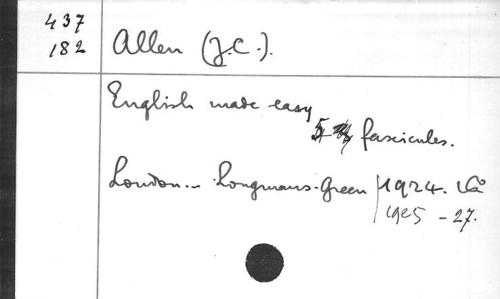 437
182
Allen (J.C.).
English made easy
5 fascicules.
London.- Longmans-Green 1924. in-8°
1925 - 27.